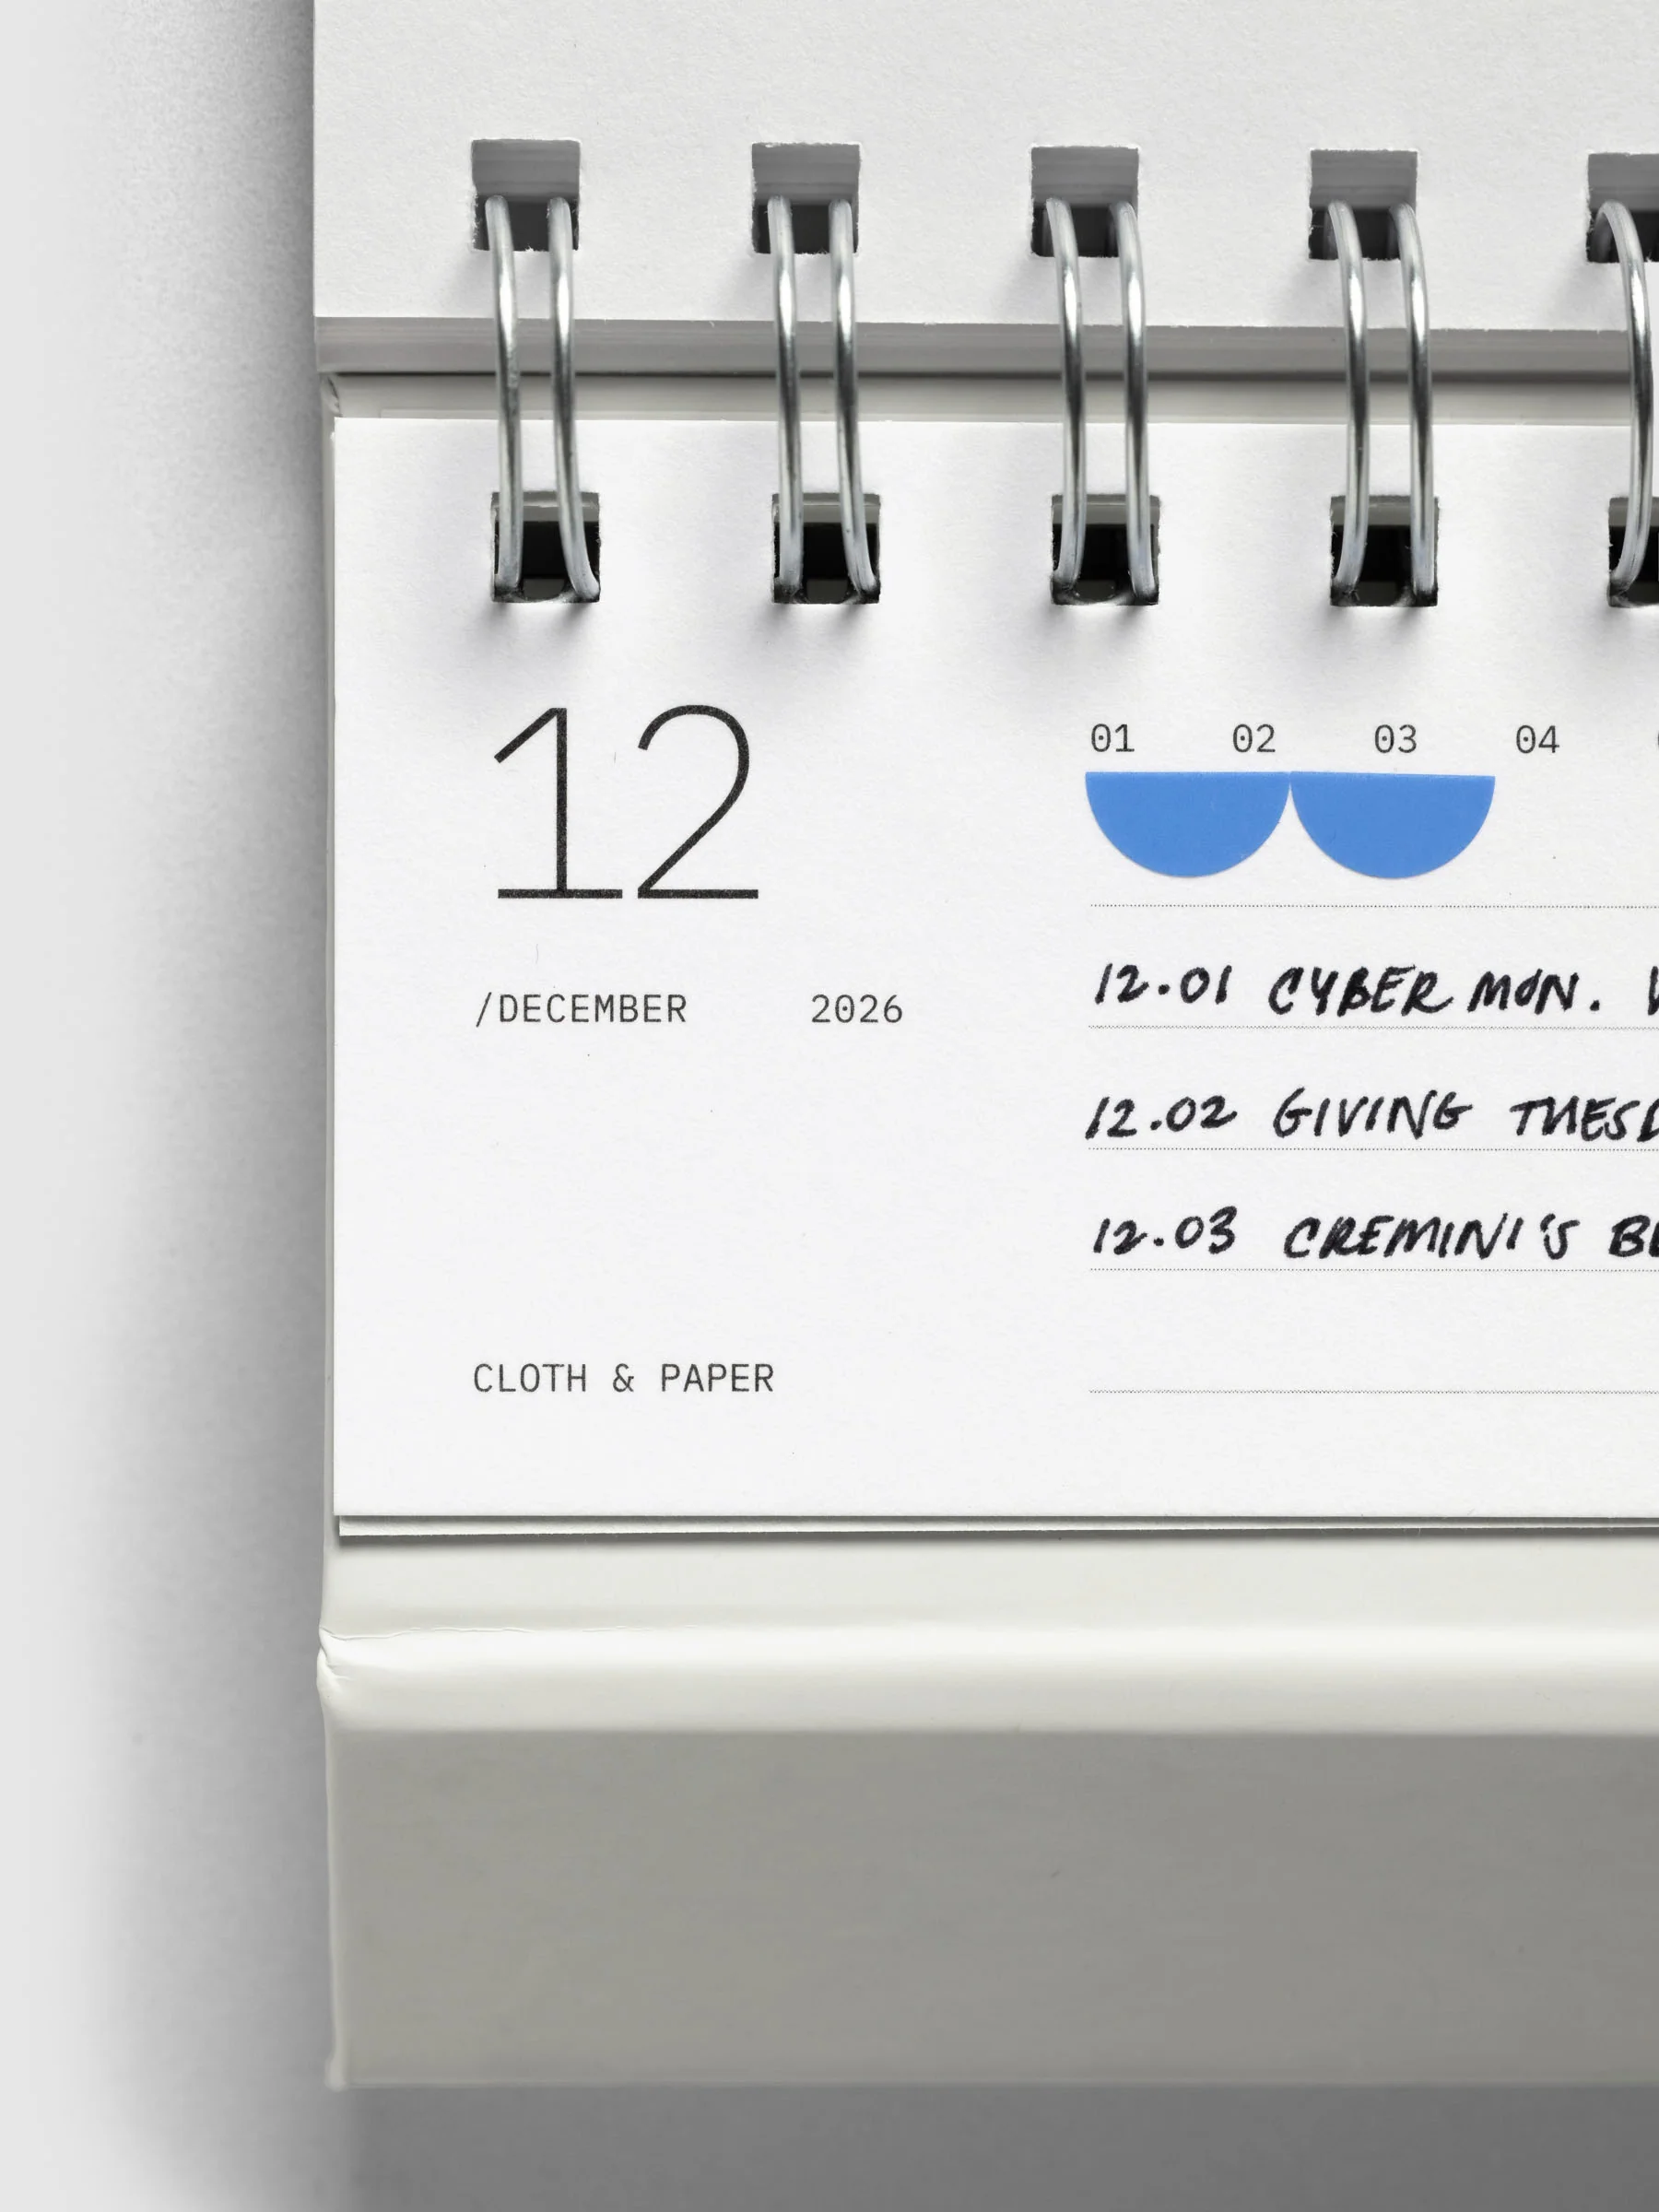 12
01 02 03 04
/DECEMBER 2026
12.01 CYBER MON.
12.02 GIVING
12.03 CREMINI'S
CLOTH & PAPER